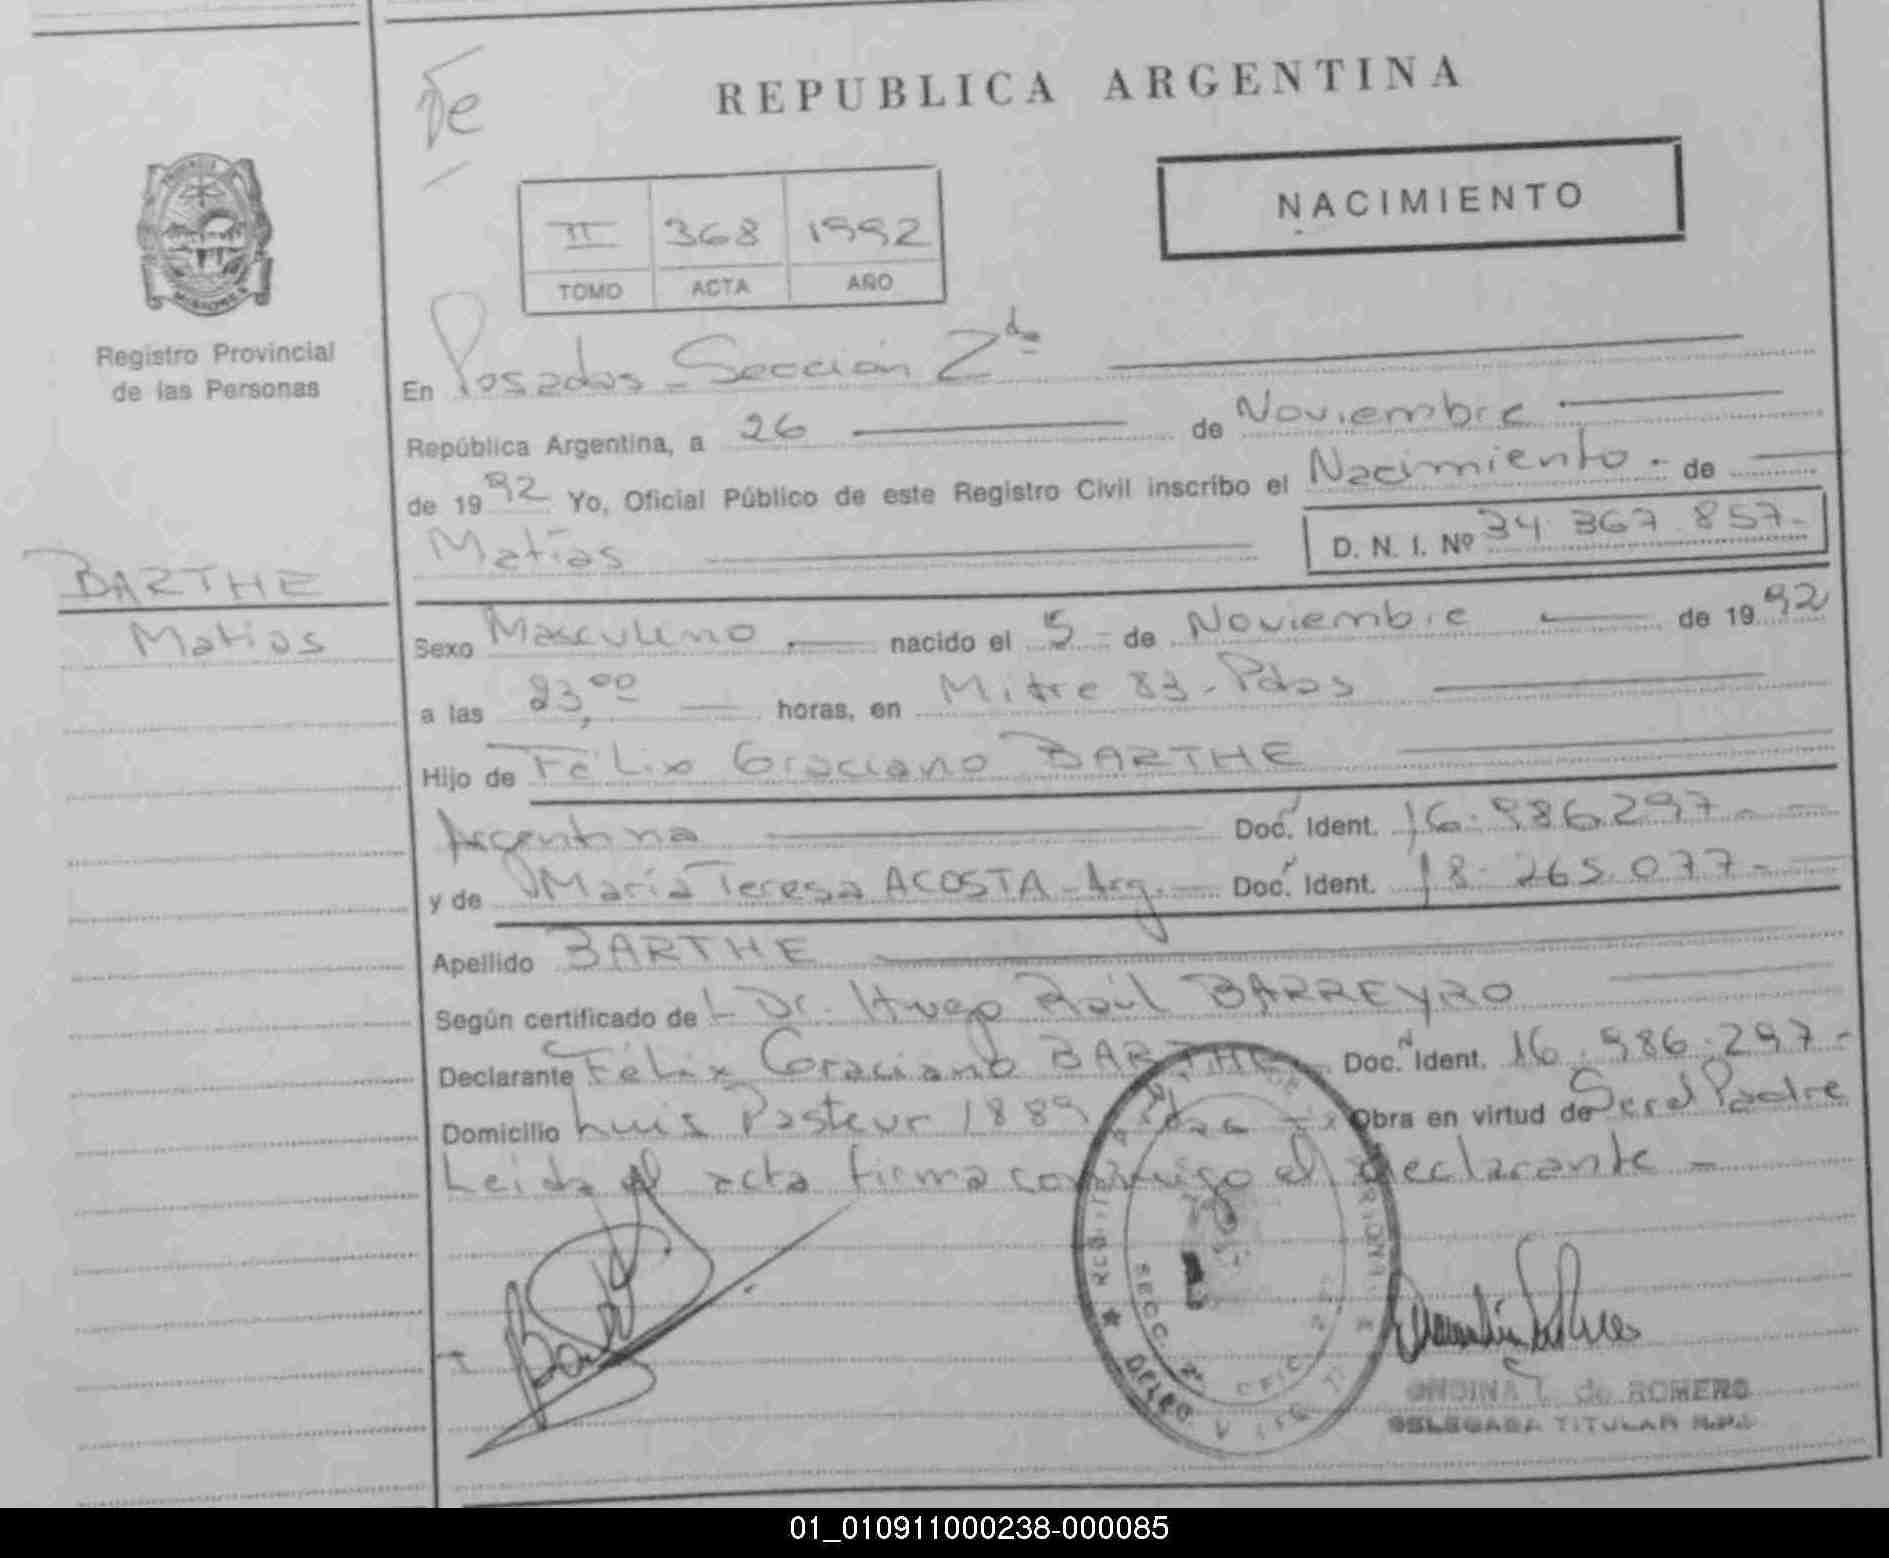 REPUBLICA ARGENTINA
NACIMIENTO
II 368 1992
TOMO ACTA AÑO
MISIONES
Registro Provincial
de las Personas
En Posadas - Sección 2da
República Argentina, a 26 de Noviembre
de 1992 Yo, Oficial Público de este Registro Civil inscribo el Nacimiento - de
Matías D. N. I. Nº 34.367.857-
BARTHE
Matias
Sexo Masculino nacido el 5 - de Noviembre de 1992
a las 23,00 horas, en Mitre 83 - Pdas
Hijo de Félix Graciano BARTHE
Argentina Doc. Ident. 16.986.297-
y de María Teresa ACOSTA - Arg. Doc. Ident. 18.265.077-
Apellido BARTHE
Según certificado de Dr. Hugo Raúl BARREYRO
Declarante Félix Graciano BARTHE Doc. Ident. 16.986.297-
Domicilio Luis Pasteur 1889 Pdas Obra en virtud de Ser el Padre
Leida el acta firma conmigo el declarante -
SECC. 2ª
ONDINA L. de ROMERO
DELEGADA TITULAR
01_010911000238-000085